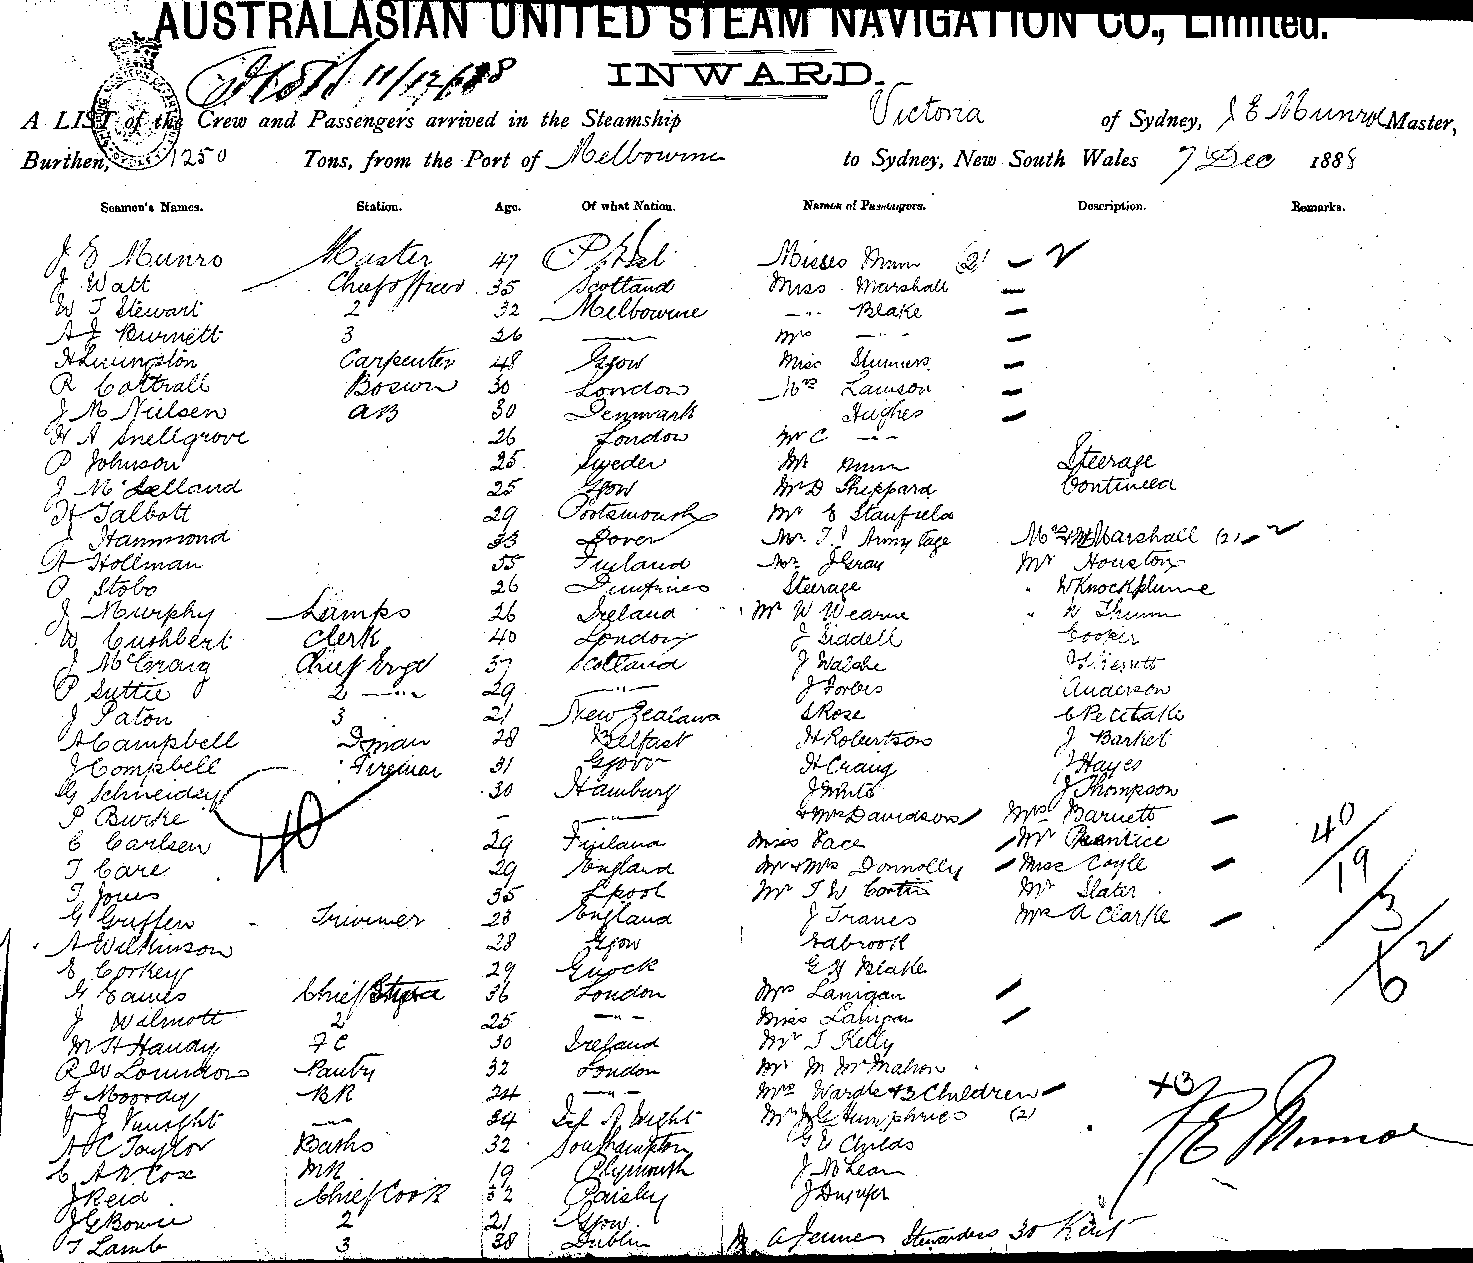 AUSTRALASIAN UNITED STEAM NAVIGATION CO., Limited.
INWARD.
11/12/88
A LIST of the Crew and Passengers arrived in the Steamship Victoria of Sydney, J E Munro Master,
Burthen, 1250 Tons, from the Port of Melbourne to Sydney, New South Wales 7 Dec 1888
Seamen's Names. Station. Age. Of what Nation. Names of Passengers. Description. Remarks.
J E Munro Master 47 Misses (2)
J Watt Chief officer 35 Scotland Miss Marshall
W T Stewart 2 32 Melbourne -"- Blake
A J Burnett 3 26 -"- Mrs -"-
H Livingston Carpenter 48 Ggow Miss
R Cottrall Boswn 30 London Mrs Lawson
J M Nielsen AB 30 Denmark Hughes
H A Snellgrove 26 London Mr C -"-
P Johnson 25 Sweden Mr Steerage
J McLelland 25 Ggow Mr D Sheppard Continued
H Talbott 29 Portsmouth Mr E Stanfield
J Hammond 33 Dover Mr Armytage Marshall (2)
A Hollman 55 Finland Mr J Gray Mr Houston
P Stobo 26 Dumfries Steerage
J Murphy Lamps 26 Ireland Mr W Wearne
W Cushbert Clerk 40 London J Siddell Cooper
J McCraig Chief Engr 37 Scotland J Walshe
P Suttie 2 -"- 29 -"- J Forbes Anderson
J Paton 3 21 New Zealand S Rose
A Campbell Dman 28 Belfast H Robertson J
J Campbell Fireman 31 Ggow H Craig J Hayes
G 30 Hamburg J White J Thompson
P Burke - -"- + Mrs Davidson Mrs Barnett
40
C Carlsen 29 Finland Miss Pace Mr Prentice
40
T Care 29 England Mr + Mrs Donnolly Miss Coyle
19
T Jones 35 Lpool Mr T W Mr Slater
G Griffen Trimmer 23 England J Mrs A Clarke
3
A Wilkinson 28 Ggow
2
E Corkey 29 G H Blake
6
G Eames Chief 36 London Mrs Lanigan
J Wilmott 2 25 -"- Miss Lanigan
M H Handy FC 30 Ireland Mr T Kelly
R W Lowndos Pantry 32 London Mr M McMahon
F Moorday BR 24 -"- Mrs Wardle + 3 Children
+3
J -"- 24 Isl of Wight Mr J G Humphries (2)
A C Taylor Baths 32 Southampton G E Childs
J E Munro
C A W Cox MR 19 Plymouth J McLean
J Reid Chief Cook 32 Paisley J
J G Bowie 2 21 Ggow
T Lamb 3 38 Dublin A Jenner Stewardess 30 Kent